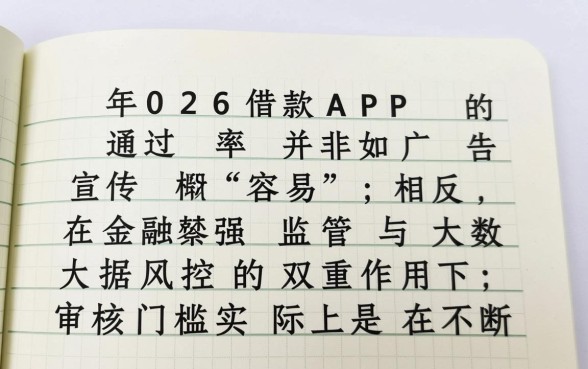 年026借款APP 的
通过 率 并非如广 告
宣传 概“容易”；相反，
在金融 强 监管 与 大数
大据风控 的 双重作用下；
审核门槛实 际上是 在不断